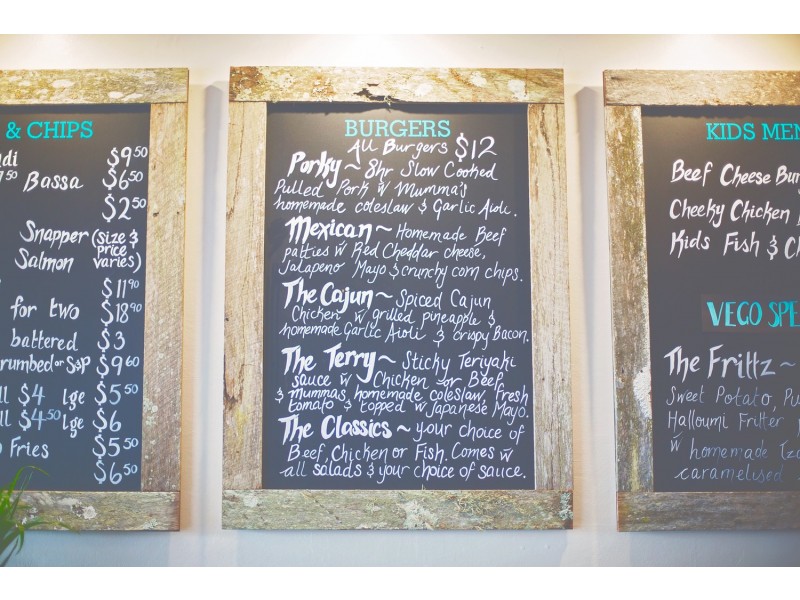 & CHIPS
$9.50
Bassa $6.50
$2.50
Snapper (size &
price
Salmon varies)
$11.90
for two $18.90
battered $3
$9.60
$4 lge $5.50
$4.50 lge $6
Fries $5.50
$6.50
BURGERS
All Burgers $12
Porky ~ 8hr Slow Cooked
Pulled Pork w Mumma's
homemade coleslaw & Garlic Aioli.
Mexican ~ Homemade Beef
patties w Red Cheddar cheese,
Jalapeno Mayo & crunchy corn chips.
The Cajun ~ Spiced Cajun
Chicken w grilled pineapple &
homemade Garlic Aioli & crispy Bacon.
The Terry ~ Sticky Teriyaki
sauce w Chicken or Beef
& mummas homemade coleslaw, fresh
tomato & topped w Japanese Mayo.
The Classics ~ your choice of
Beef, Chicken or Fish. Comes w
all salads & your choice of sauce.
KIDS MEN
Beef Cheese Bur
Cheeky Chicken
Kids Fish & Ch
VEGO SPE
The Frittz ~
Sweet Potato, Pu
Halloumi Fritter
w homemade
caramelised